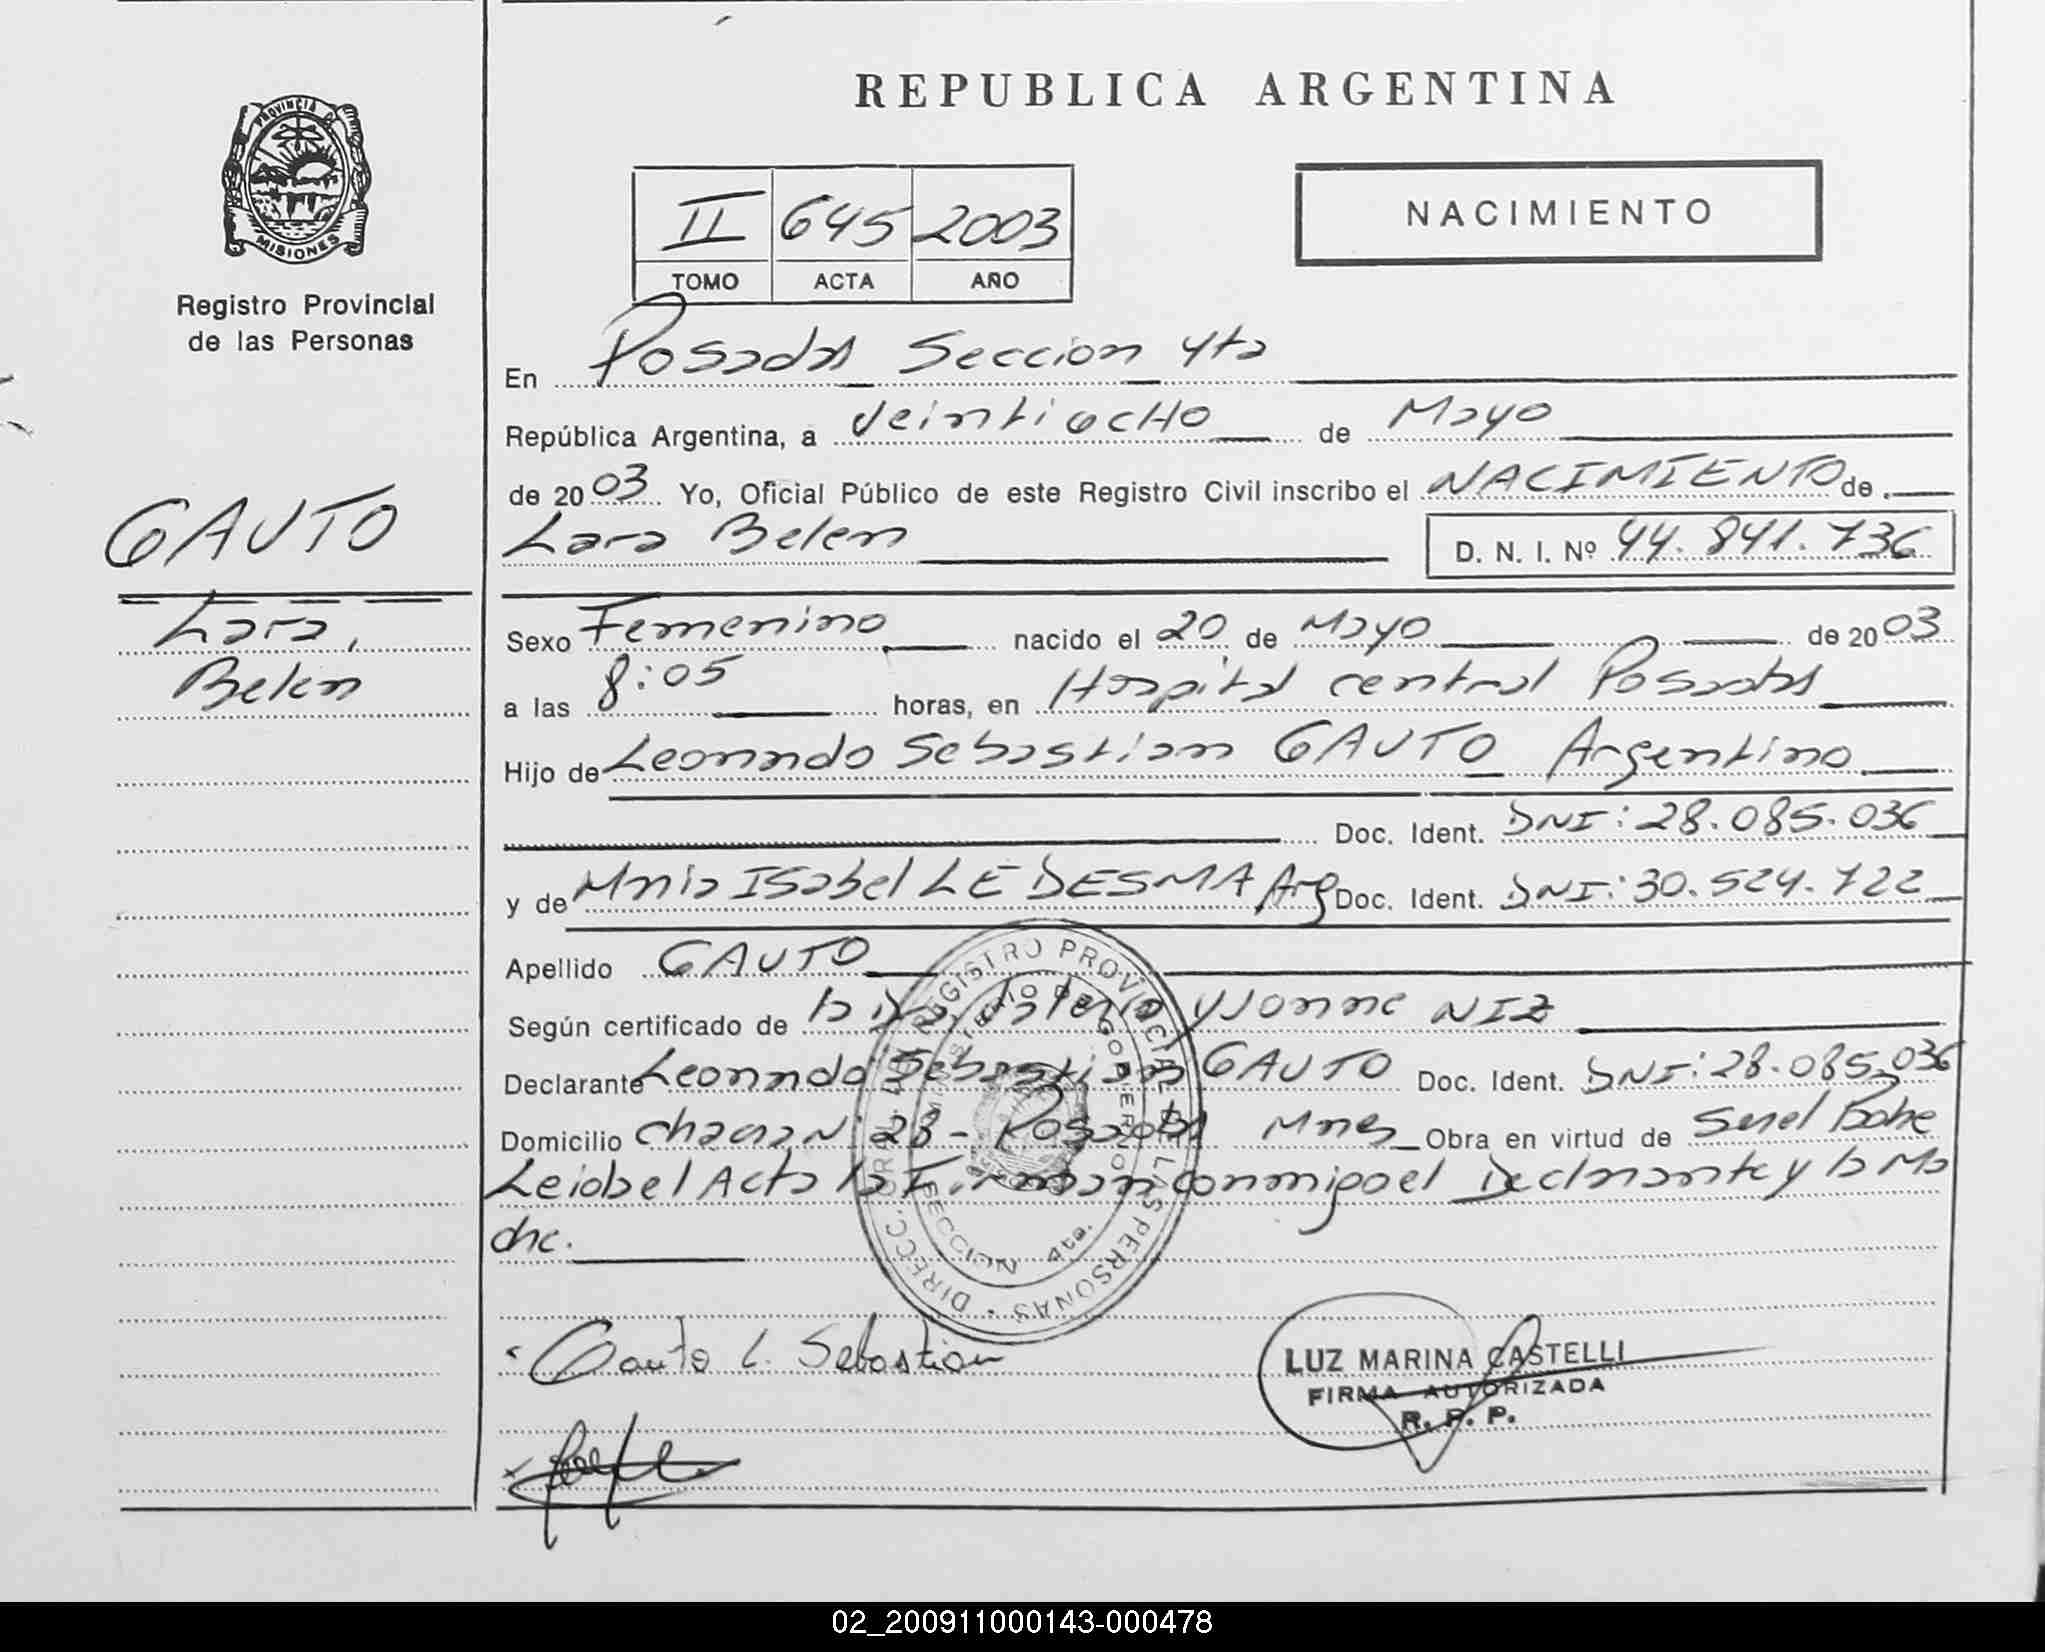 REPUBLICA ARGENTINA
PROVINCIA DE
MISIONES
Registro Provincial
de las Personas
II 645 2003
TOMO ACTA AÑO
NACIMIENTO
En Posadas Seccion 4ta
República Argentina, a veintiocho de Mayo
de 2003 Yo, Oficial Público de este Registro Civil inscribo el NACIMIENTO de
GAUTO
Lara Belen D. N. I. Nº 44.841.736
Lara,
Belen
Sexo Femenino nacido el 20 de Mayo de 2003
a las 8:05 horas, en Hospital central Posadas
Hijo de Leonardo Sebastian GAUTO Argentino
Doc. Ident. DNI: 28.085.036
y de Maria ISabel LEDESMA Arg Doc. Ident. DNI: 30.524.722
Apellido GAUTO
Según certificado de la Yvonne NIZ
Declarante Leonardo Sebastian GAUTO Doc. Ident. DNI: 28.085.036
Domicilio Nº 23 - Posadas Mnes Obra en virtud de Ser el Padre
Leida el Acta la Firman conmigo el Declarante y la Ma
dre.
DIRECC. GRAL. DEL REGISTRO PROVINCIAL DE LAS PERSONAS
MINISTERIO DE GOBIERNO
SECCION 4ta.
Gauto L. Sebastian
LUZ MARINA CASTELLI
FIRMA AUTORIZADA
R. P. P.
02_200911000143-000478